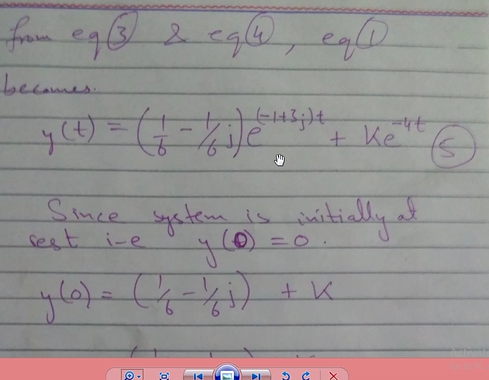 from eq ③ & eq ④, eq ①
becomes.
y(t) = (1/6 - 1/6 j) e^(-1+3j)t + Ke^-4t ⑤
Since system is initially at
rest i-e y(0) = 0.
y(0) = (1/6 - 1/6 j) + K